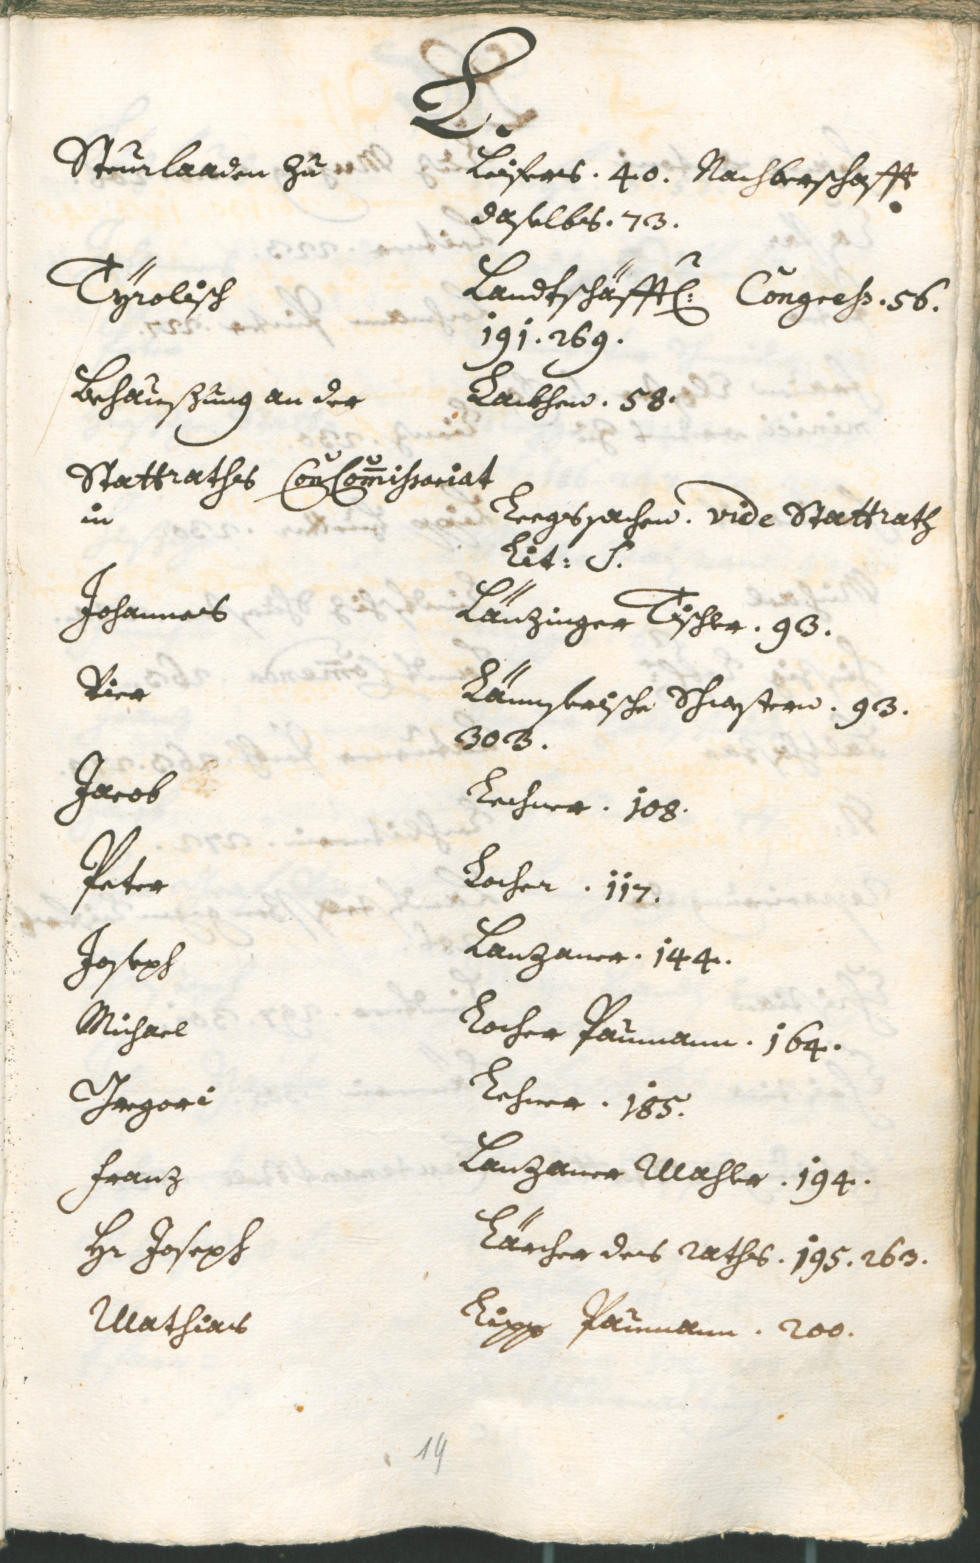 L.
Steurlaaden zu Leifers. 40. Nachberschafft
daselbs. 73.
Tÿrolisch Landtschäfftl: Congress. 56.
191. 269.
Behaußung an der Laithen. 58.
Stattrathes Commissariat
in Kriegssachen. vide Stattrath
Lit: S.
Johannes Länzinger Tischler. 93.
Vier Schwestern. 93.
303.
Jacob Lechner. 108.
Peter Locher. 117.
Joseph Lanzaner. 144.
Michael Locher Paumann. 164.
Gregori Lehner. 185.
Franz Lanzaner Mahler. 194.
Hr Joseph Lärcher des raths. 195. 263.
Mathias Lipp Paumann. 200.
14